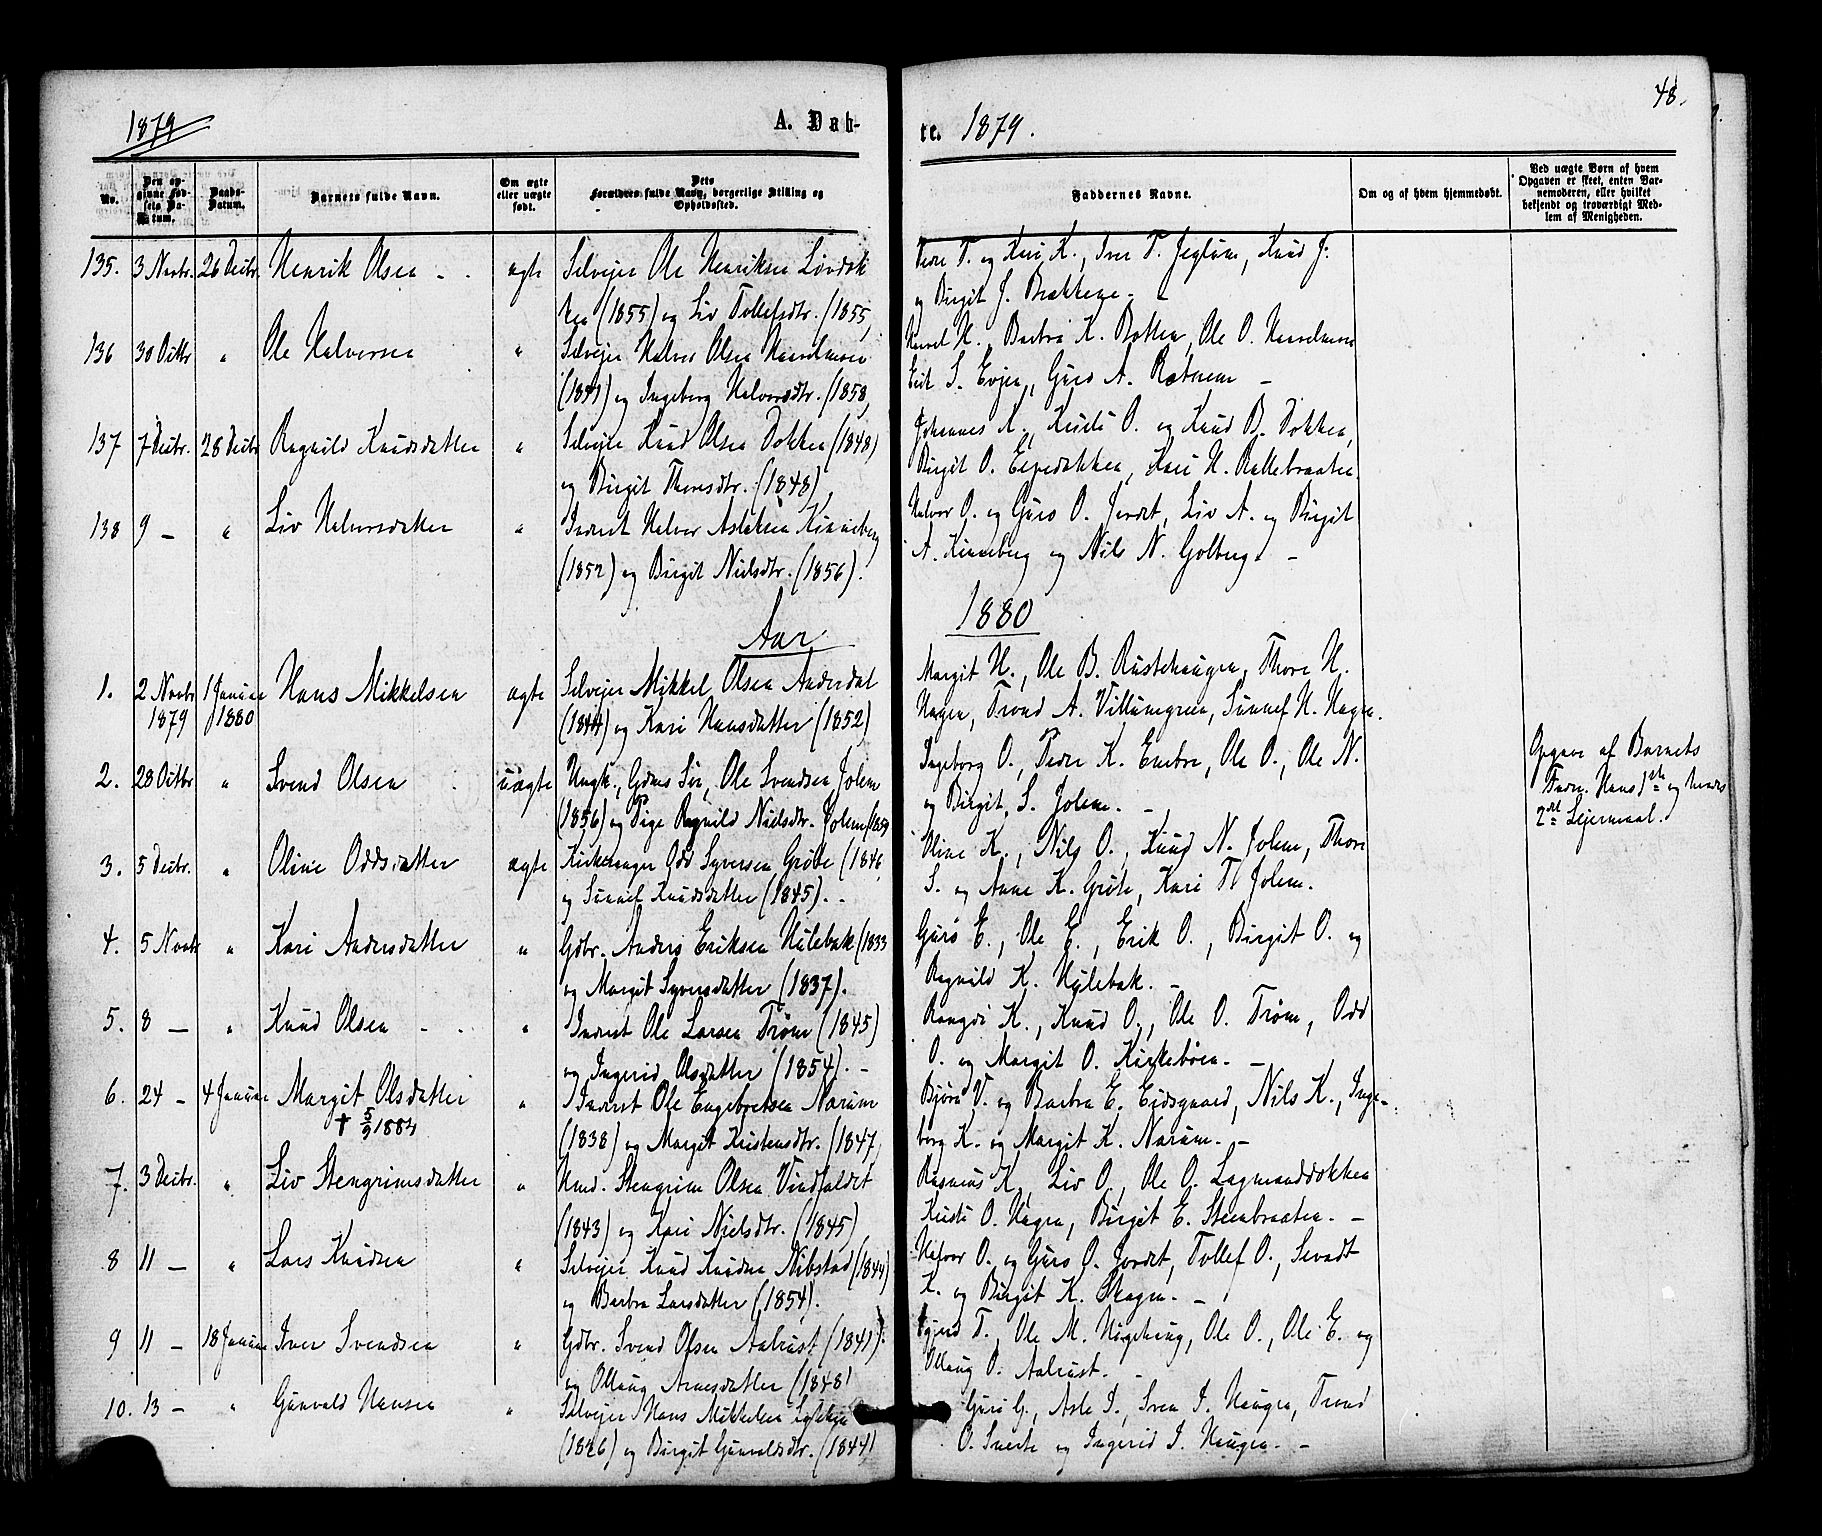 1879
A. Dab-
te. 1879.
48.
No.
Den opgivne Fødsels Datum.
Daabs-Datum.
Barnets fulde Navn.
Om ægte eller uægte født.
Dets Forældres fulde Navn, borgerlige Stilling og Opholdssted.
Faddernes Navne.
Om og af hvem hjemmedøbt.
Ved uægte Børn af hvem Opgaven er skeet, enten Barnemoderen, eller hvilket bekjendt og troværdigt Medlem af Menigheden.
135. 3 Novbr. 26 Decbr. Henrik Olsen - . ægte Selvejer Ole Henriksen Lövdok
ken (1855) og Liv Tollefsdtr. (1855,
Peder T. og Kari K., Iver T. Jeglum, Knud J:
og Birgit J. Brækkene. -
136 30 Octbr " Ole Halvorsen " Selvejer Halvor Olsen Haavelmoen
(1841) og Ingeborg Halvorsdtr. (1858,
Harvel H., Barbra K. Bakken, Ole O. Haavelmoen
Erik S. Evjen, Guro A. Rotneim -
137 7 Decbr. 28 Decbr Ragnild Knudsdatter " Selvejer Knud Olsen Dokken (1848)
og Birgit Thoresdtr. (1848)
Johannes K., Kristi O. og Knud B. Dokken,
Birgit O. Espedokken, Kari H. Ballebraaten
138 9 — " Liv Halvorsdatter " Inderst Halvor Aslaksen Kinneberg
(1852) og Birgit Nielsdtr. (1856).
Halvor O. og Guro O. Jordet, Liv A. og Birgit
A. Kinneberg og Nils N. Golberg. -
Aar
1880
1. 2 Novbr 1879 1 Januar 1880 Hans Mikkelsen ægte Selvejer Mikkel Olsen Andersdal
(1844) og Kari Hansdatter (1852)
Margit H., Ole B. Rustehaugen, Thore H.
Hagen, Trond A. Villumgreen, Sunnef H. Hagen.
2. 23 Octbr " Svend Olsen uægte Ungk., Gdms Sön, Ole Svendsen Jolem
(1856) og Pige Ragnild Nielsdtr. Jolem (1859
Ingeborg O., Peder K. Enebre, Ole O., Ole N.
og Birgit S. Jolem. -
Opgave af Barnets
Fader. Hans 1ste og hendes
2det Lejermaal.
3. 5 Decbr. " Oline Oddsdatter ægte Kirkesanger Odd Syversen Gröte (1846
og Sunnef Knudsdatter (1845). -
Oline K., Nils O., Knud N. Jolem, Thore
S. og Anne K. Gröte, Kari Th Jolem.
4. 5 Novbr " Kari Andersdatter " Gdbr. Anders Eriksen Hulebak (1833
og Margit Syversdatter (1837).
Guro E., Ole E., Erik O., Birgit O. og
Ragnild K. Hulebak. -
5. 8 — " Knud Olsen - . " Inderst Ole Larsen Tröim (1845)
og Ingerid Olsdatter (1854). -
Rangdi K., Knud O., Ole O. Tröim, Odd
O. og Margit O. Kirkeböen. -
6. 24 - 4 Januar Margit Olsdatter " Inderst Ole Engebretsen Narum
† 5/9 1884
(1838) og Margit Kristensdtr. (1847,
Björn V. og Barbra E. Eidsgaard, Nils K., Inge-
borg K. og Margit K. Narum. -
7. 3 Decbr. " Liv Stengrimsdatter " Hmd. Stengrim Olsen Vindfaldet
(1843) og Kari Nielsdtr. (1845)
Rasmus K, Liv O., Ole O. Lagmanddokken
Kristi O. Hagen, Birgit E. Steenbraaten. -
8 11 — " Lars Knudsen " Selvejer Knud Knudsen Nibstad (1844)
og Barbra Larsdatter (1854).
Halvor O. og Guro O. Jordet, Tollef O., Sevadt
K. og Birgit K. Skogen. -
9 11 — 18 Januar Iver Svendsen " Gdbr. Svend Olsen Aalrust (1841).
og Ollaug Arnesdatter (1848)
T., Ole M. Högehaug, Ole O., Ole E. og
Ollaug O. Aalrust. -
10. 13 — " Gunvald Hansen " Selvejer Hans Mikkelsen Lökken
(1826) og Birgit Gunvaldsdtr. (1844)
Guro G., Asle I., Sven I. Haugen, Trond
O. Sverte og Ingerid I. Haugen. -